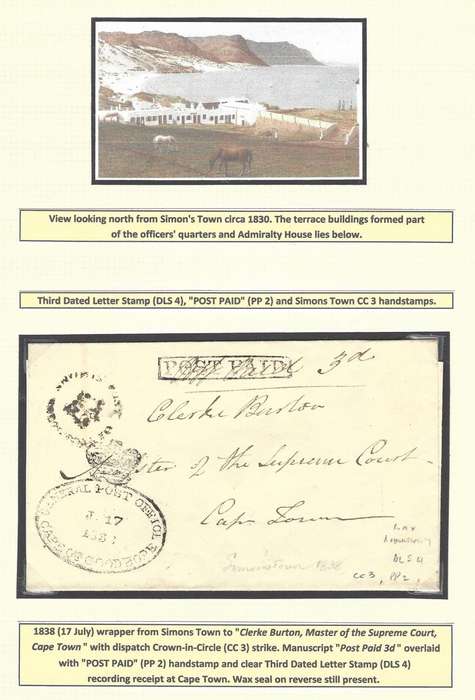 View looking north from Simon's Town circa 1830. The terrace buildings formed part
of the officers' quarters and Admiralty House lies below.
Third Dated Letter Stamp (DLS 4), "POST PAID" (PP 2) and Simons Town CC 3 handstamps.
POST PAID
Post Paid 3d
Clerke Burton
Master of the Supreme Court
Cape Town
GENERAL POST OFFICE
17
CAPE OF GOOD HOPE
Simonstown 1838
DLS 4
CC3, PP2,
1838 (17 July) wrapper from Simons Town to "Clerke Burton, Master of the Supreme Court,
Cape Town" with dispatch Crown-in-Circle (CC 3) strike. Manuscript "Post Paid 3d" overlaid
with "POST PAID" (PP 2) handstamp and clear Third Dated Letter Stamp (DLS 4)
recording receipt at Cape Town. Wax seal on reverse still present.